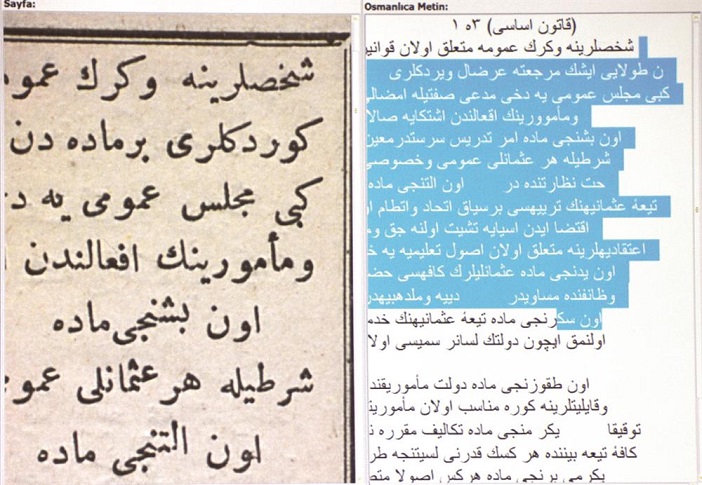 Sayfa:
شخصلرینه وکرك عمو
کوردکلری برماده دن
کبی مجلس عمومی یه د
ومأمورینك افعالندن
اون بشنجی ماده
شرطیله هر عثمانلی عمو
اون التنجی ماده
Osmanlıca Metin:
(قاتون اساسی) ٣ه ١
شخصلرینه وکرك عمومه متعلق اولان قوانیر
ن طولایی ایشك مرجعته عرضال ویردکلری
کبی مجلس عمومی یه دخی مدعی صفتیله امضالی
ومأموورینك اقعالندن اشتکایه صالا
اون بشنجی ماده امر تدریس سرستدرمعین
شرطیله هر عثمانلی عمومی وخصوصی
حت نظارتنده در اون التنجی ماده
تیعهٔ عثمانیهنك ترییهسی برسیاق اتحاد واتطام او
اقتضا ایدن اسیایه تشیت اولنه جق وم
اعتقادیهلرینه متعلق اولان اصول تعلیمیه یه خ
اون یدنجی ماده عثمانلیلرك کافهسی حض
وظانفنده مساویدر دییه وملدهبیهدر
اون سکرنجی ماده تیعهٔ عثمانیهنك خدم
اولنمق ایچون دولتك لسانر سمیسی اولا
اون طقوزنجی ماده دولت مأموریقند
وقایلیتلرینه کوره مناسب اولان مأموریت
توقیقا یکر منجی ماده تکالیف مقرره ن
کافهٔ تیعه بیننده هر کسك قدرنی لسیتنجه طر
یکرمی برنجی ماده هرکس اصولا متص